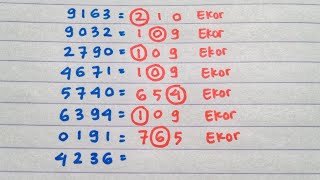 9163 = 2 1 0 Ekor
9032 = 1 0 9 Ekor
2790 = 1 0 9 Ekor
4671 = 1 0 9 Ekor
5740 = 6 5 4 Ekor
6394 = 1 0 9 Ekor
0191 = 7 6 5 Ekor
4236 =